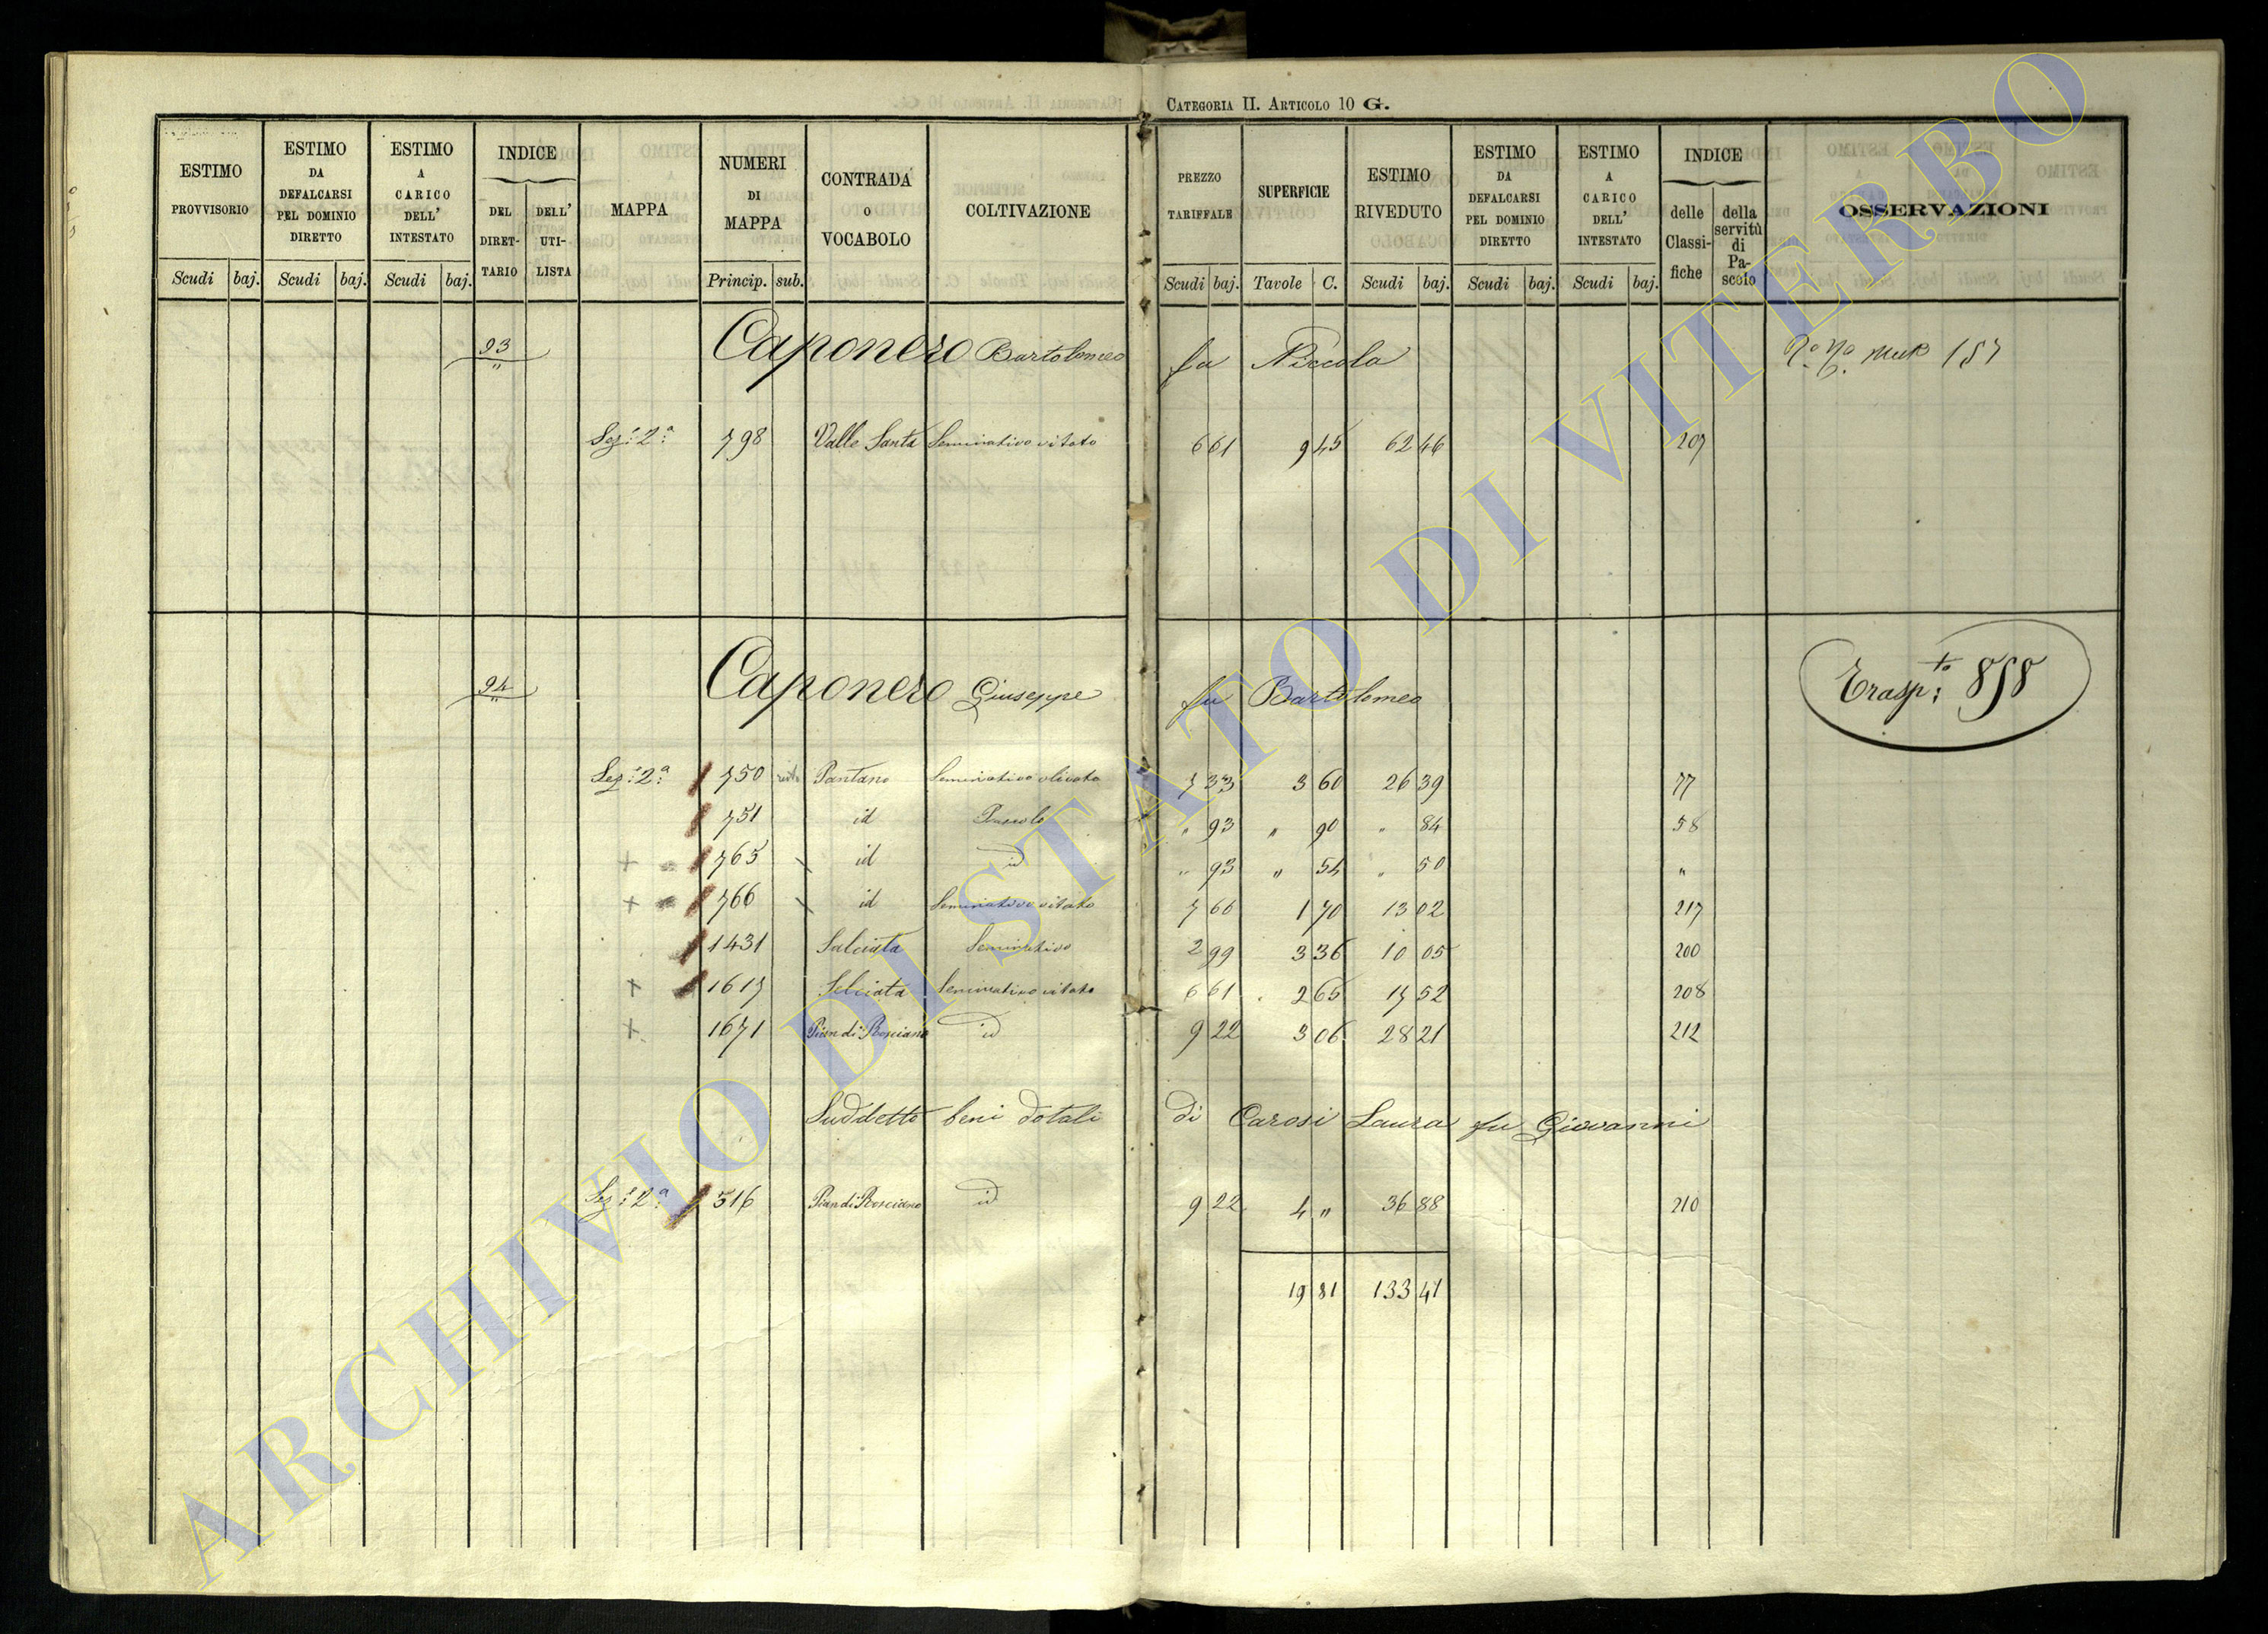 CATEGORIA II. ARTICOLO 10 G.
ESTIMO PROVVISORIO Scudi baj.
ESTIMO DA DEFALCARSI PEL DOMINIO DIRETTO Scudi baj.
ESTIMO A CARICO DELL' INTESTATO Scudi baj.
INDICE DEL DIRET-TARIO DELL' UTI-LISTA
MAPPA
NUMERI DI MAPPA Princip. sub.
CONTRADA O VOCABOLO
COLTIVAZIONE
PREZZO TARIFFALE Scudi baj.
SUPERFICIE Tavole C.
ESTIMO RIVEDUTO Scudi baj.
ESTIMO DA DEFALCARSI PEL DOMINIO DIRETTO Scudi baj.
ESTIMO A CARICO DELL' INTESTATO Scudi baj.
INDICE delle Classi-fiche della servitù di Pa-scolo
OSSERVAZIONI
93 Caponero Bartolomeo fu Niccola 157
Sez: 2ª 798 Valle Santa Seminativo vitato 6 61 9 45 62 46 207
94 Caponero Giuseppe fu Bartolomeo Trasp:to 858
Sez: 2ª 750 Pantano Seminativo olivato 7 33 3 60 26 39 77
751 id Pascolo " 93 " 90 " 84 58
+ 765 id id " 93 " 54 " 50 "
+ 766 id Seminativo vitato 7 66 1 70 13 02 217
1431 Salciata Seminativo 2 99 3 36 10 05 200
+ 1617 Selciata Seminativo vitato 6 61 2 65 17 52 208
+ 1671 Pian di Rosciano id 9 22 3 06 28 21 212
Suddetto beni dotali di Carosi Laura fu Giovanni
Sez: 2ª 516 Pian di Rosciano id 9 22 4 " 36 88 210
19 81 133 41
ARCHIVIO DI STATO DI VITERBO